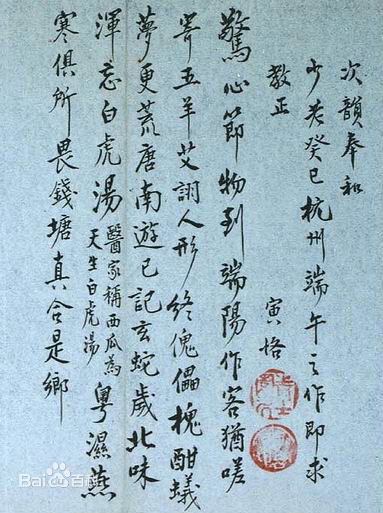 次韻奉和
少老癸巳杭州端午之作即求
教正
寅恪
驚心節物到端陽作客猶嗟
寄五羊艾詡人形終傀儡槐酣蟻
夢更荒唐南遊已記玄蛇歲北味
渾忘白虎湯醫家稱西瓜為
天生白虎湯粵濕燕
寒俱所畏錢塘真合是鄉
Bai百科